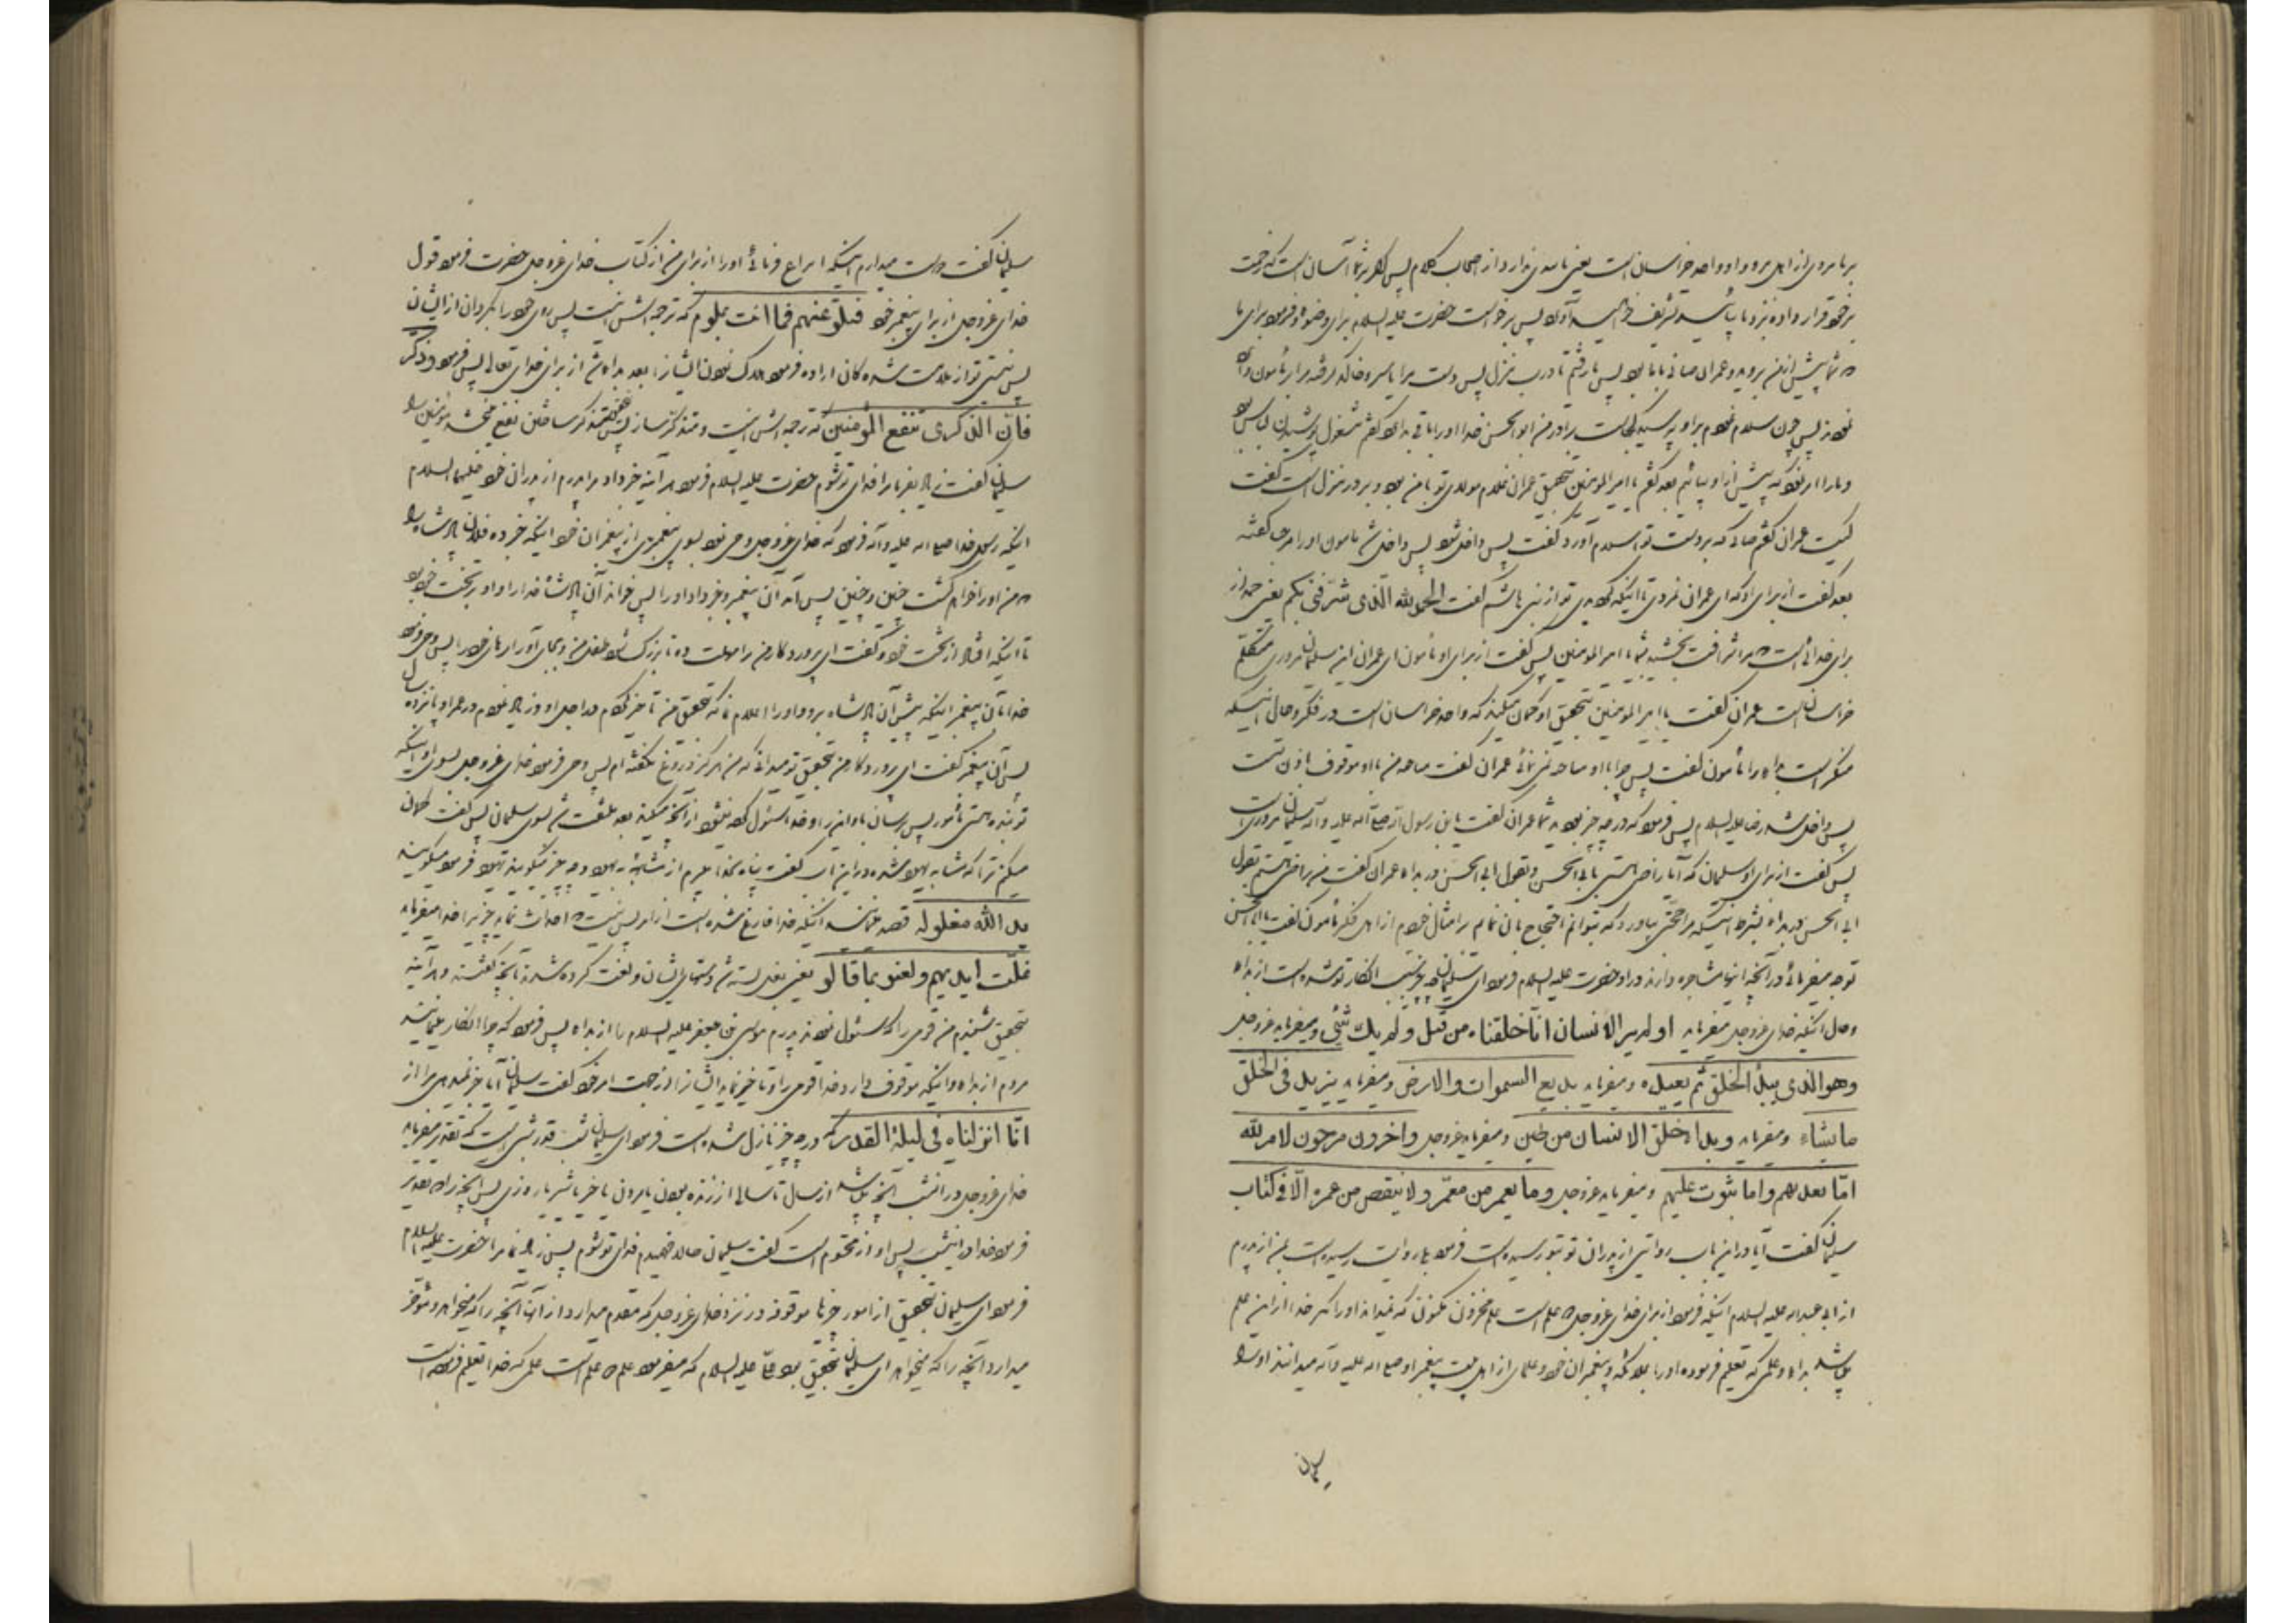 برما مردی از اهل مرو و او واحد خراسان است یعنی ثانی ندارد از اصحاب کلام پس اگر بر شما آسان است که زحمت
بر خود قرار داده نزد ما بیائید تشریف آورید پس برخواست حضرت علیه السلام برای وضو و فرمود برای ما
که شما پیش از من بروید و عمران صابی با ما بود پس ما رفتیم تا درب منزل پس دست مرا یاسر و خالد گرفته مرا بر مأمون داخل
نمودند پس چون سلام نمودم بر او پرسید کجاست برادر من ابوالحسن خدا او را باقی بدارد گفتم مشغول پوشیدن لباس بود
و ما را امر نمود که پیش از او بیائیم بعد گفتم یا امیر المؤمنین بتحقیق عمران غلام مولای تو با من بود و بر در منزل است گفت
کیست عمران گفتم صابی که بر دست تو اسلام آورد گفت پس داخل شود پس داخل شد مأمون او را مرحبا گفته
بعد گفت از برای او که ای عمران نمردی تا اینکه گردیدی تو از بنی هاشم گفت الحمد لله الّذی شرّفنی بکم یعنی حمد از
برای خدائی است که مرا شرافت بخشید بشما یا امیر المؤمنین پس گفت از برای او مأمون ای عمران این سلیمان مروزی متکلّم
خراسان است عمران گفت یا امیر المؤمنین بتحقیق او گمان میکند که واحد خراسان است در فکر و حال اینکه
منکر است بداء را مأمون گفت پس چرا با او مباحثه نمی نمائی عمران گفت مباحثه من با او موقوف اذن تست
پس داخل شد رضا علیه السلام پس فرمود که در چه چیز بودید شما عمران گفت یا بن رسول الله صلی الله علیه و آله سلیمان مروزی است
پس گفت از برای او سلیمان که آیا راضی هستی بابی الحسن و بقول ابی الحسن در بداء عمران گفت من راضی هستم بقول
ابی الحسن در بداء بشرط اینکه مرا حجّتی بیاورد که بتوانم احتجاج بآن نمایم بر امثال خودم از اهل فکر مأمون گفت یا ابا الحسن
توجه میفرمائی در آنچه اینها مشاجره دارند در او حضرت علیه السلام فرمود ای سلیمان چه چیز سبب انکار تو شده است از بداء
و حال اینکه خدای عزوجل میفرماید اولم یر الانسان انّا خلقناه من قبل ولم یك شئی و میفرماید عزوجل
وهو الّذی یبدأ الخلق ثم یعیده و میفرماید بدیع السموات والارض و میفرماید یزید فی الخلق
ما یشاء و میفرماید وبدا خلق الانسان من طین و میفرماید عزوجل واخرون مرجون لامر لله
امّا یعذبهم واما یتوب علیهم و میفرماید عزوجل وما یعمر من معمّر ولا ینقص من عمره الّا فی کتاب
سلیمان گفت آیا در این باب روایتی از پدران تو بتو رسیده است فرمود بلی روایت رسیده است بمن از پدرم
از ابی عبدالله علیه السلام اینکه فرمود از برای خدای عزوجل دو علم است علم مخزون مکنون که نمیداند او را مگر خدا از این علم
میباشد بداء و علمی که تعلیم فرموده او را بملائکه و پیغمبران خود و علمای از اهل بیت پیغمبر او صلی الله علیه و آله میدانند او را
سلیمان
سلیمان گفت دوست میدارم اینکه انتزاع فرمائی او را از برای من از کتاب خدای عزوجل حضرت فرمود قول
خدای عزوجل از برای پیغمبر خود فتلوّ عنهم فما انت بملوم که ترجمه اش اینست پس روی خود را بگردان از ایشان
پس نیستی تو از ملامت شده گان اراده فرمود هلاک نمودن ایشان را بعد بداء شد از برای خدای تعالی پس فرمود وذکّر
فانّ الذکری تنفع المؤمنین که ترجمه اش اینست و متذکر ساز پس متذکر ساختن نفع می بخشد مؤمنین را
سلیمان گفت زیاد بفرما مرا فدای تو شوم حضرت علیه السلام فرمود هر آینه خبر داد مرا پدرم از پدران خود علیهما السلام
اینکه رسول خدا صلی الله علیه و آله فرمود که خدای عزوجل وحی نمود بسوی پیغمبری از پیغمبران خود اینکه خبر ده فلان پادشاه را
که من او را خواهم کشت چنین و چنین پس آمد آن پیغمبر و خبر داد او را پس خواند آن پادشاه خدا را و او بر تخت خود بود
تا اینکه افتاد از تخت خود و گفت ای پروردگار من مرا مهلت ده تا بزرگ شود طفل من و بجای آورد کارهای خود را پس وحی نمود
خدا بآن پیغمبر اینکه پیش آن پادشاه برو و او را اعلام نما که بتحقیق من تأخیر نمودم در اجل او و زیاد نمودم در عمر او پانزده سال
پس آن پیغمبر گفت ای پروردگار من بتحقیق تو میدانی که من هرگز دروغ نگفته ام پس وحی فرمود خدای عزوجل بسوی او اینکه
تو بنده هستی مأمور پس برسان باو این را و خدا مسئول کرده نمیشود از آنچه میکند بعد ملتفت شد بسوی سلیمان پس گفت گمان
میکنم ترا که مشابه یهود شده در این باب گفت پناه بخدا میبرم از مشابهت یهود و چه چیز میگویند یهود فرمود میگویند
ید الله مغلوله قصد مینمایند اینکه خدا فارغ شده است از امر پس نیست که احداث نماید چیزی را خدا میفرماید
غلّت ایدیهم ولعنو بما قالو یعنی بغل بسته شد دستهای ایشان و لعنت کرده شدند بآنچه گفتند و هر آینه
بتحقیق شنیدم من قومی را که مسئول نمودند پدرم موسی بن جعفر علیه السلام را از بداء پس فرمود که چرا انکار مینمایند
مردم از بداء و اینکه موقوف دارد خدا قومی را و تأخیر نماید ایشانرا از جهت امر خود گفت سلیمان آیا خبر نمیدهی مرا از
انّا انزلناه فی لیلة القدر که در چه چیز نازل شده است فرمود ای سلیمان شب قدر شبی است که تقدیر میفرماید
خدای عزوجل در آنشب آنچه میباشد از سال تا سالی از زنده بودن یا مردن یا خیر یا شر یا روزی پس آنچه را که تقدیر
فرمود خدا در آنشب پس او از محتوم است گفت سلیمان حالا فهمیدم فدای تو شوم پس زیاد نما مرا حضرت علیه السلام
فرمود ای سلیمان بتحقیق از امور چیزها موقوفند در نزد خدای عزوجل که مقدم میدارد از آنها آنچه را که میخواهد و مؤخر
میدارد آنچه را که میخواهد ای سلیمان بتحقیق بود علی علیه السلام که میفرمود علم دو علم است علمی که خدا تعلیم فرموده است